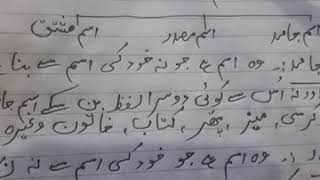 اسم جامد اسم مصدر اسم مشتق
جامد:۔ وہ اسم ہے جو نہ خود کسی اسم سے بنا
اور نہ اُس سے کوئی دوسرا لفظ بن سکے اسم
کرسی، میز، پتھر، کتاب، خاتون وغیرہ
وہ اسم ہے جو خود کسی اسم سے نہ